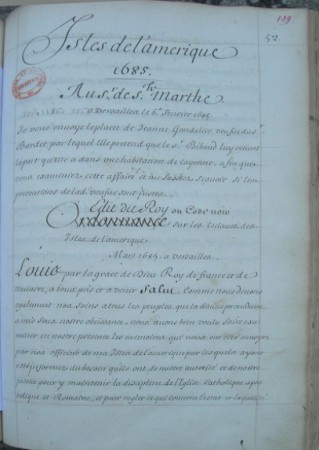 139
52
Isles de l'amerique
1685.
Au S. de S.te Marthe
a Versailles le 6e fevrier 1685
Je vous envoye le placet de Jeanne
Bardet par lequel elle pretend que le Sr.
la part qu'elle a dans une habitation de Cayenne, afin que
vous examiniez cette affaire et me fassiez sçavoir si les
pretentions de lad. veufve sont justes.
Edit du Roy ou Code noir
Ordonnance sur les esclaves des
Isles de l'amerique.
Mars 1685 a Versailles.
Louis par la grace de Dieu Roy de france et de
navarre, a tous pns et a venir Salut. Comme nous devons
egalement nos soins a tous les peuples que la divine providence
a mis sous nostre obeissance, nous avons bien voulu faire exa
miner en nostre presence les memoires qui nous ont esté envoyez
par nos officiers de nos Isles de l'amerique par lesquels ayant
esté informez du besoin qu'ils ont de nostre autorité et de nostre
justice pour y maintenir la discipline de l'Eglise Catholique apos
tolique et Romaine, et pour regler ce qui concerne l'estat et la qualité